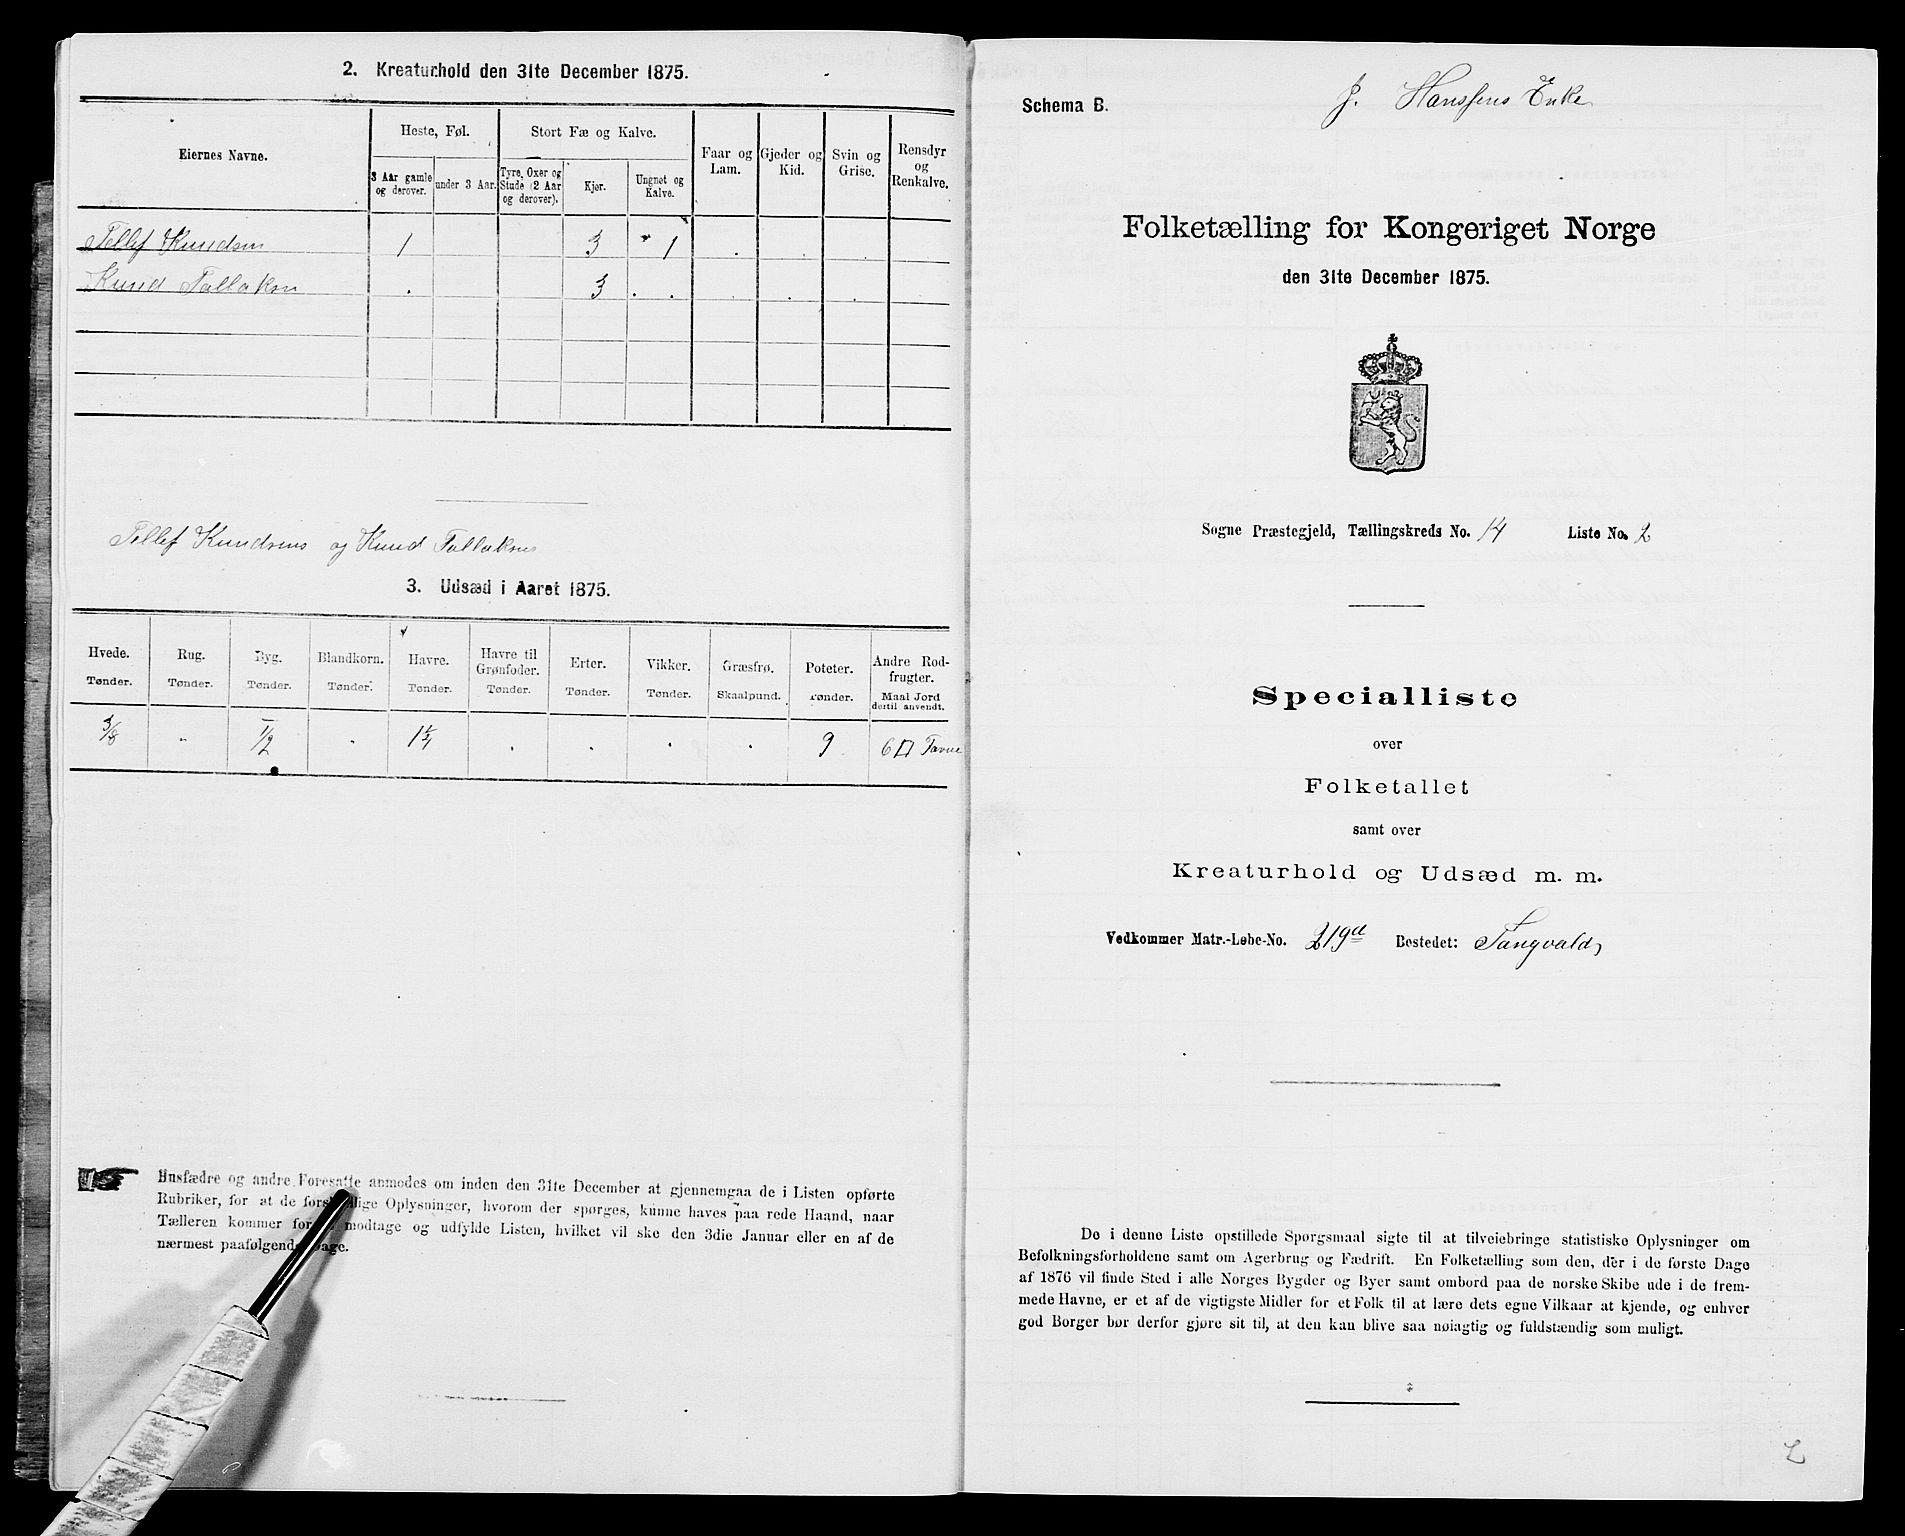 2. Kreaturhold den 31te December 1875.
Eiernes Navne.
Heste, Føl.
Stort Fæ og Kalve.
Faar og Lam.
Gjeder og Kid.
Svin og Grise.
Rensdyr og Renkalve.
3 Aar gamle og derover.
under 3 Aar.
Tyre, Oxer og Stude (2 Aar og derover).
Kjør.
Ungnøt og Kalve.
Tellef Knudsen 1 3 " 1 . . .
Knud Tallaksen . 3 . . . . .
Tellef Knudsens og Knud Tallaksens
3. Udsæd i Aaret 1875.
Hvede. Tønder.
Rug. Tønder.
Byg. Tønder.
Blandkorn. Tønder.
Havre. Tønder.
Havre til Grønfoder. Tønder.
Erter. Tønder.
Vikker. Tønder.
Græsfrø. Skaalpund.
Poteter. Tønder.
Andre Rodfrugter. Maal Jord dertil anvendt.
3/8 " 1/2 " . . . . 9 6 □ Favne
Husfædre og andre Foresatte anmodes om inden den 31te December at gjennemgaa de i Listen opførte
Rubriker, for at de forskjellige Oplysninger, hvorom der spørges, kunne haves paa rede Haand, naar
Tælleren kommer for at modtage og udfylde Listen, hvilket vil ske den 3die Januar eller en af de
nærmest paafølgende Dage.
Schema B.
J. Hanssens Enke
Folketælling for Kongeriget Norge
den 31te December 1875.
Sogne Præstegjeld, Tællingskreds No. 14 Liste No. 2
Specialliste
over
Folketallet
samt over
Kreaturhold og Udsæd m. m.
Vedkommer Matr.-Løbe-No. 219d Bostedet: Tangvald,
De i denne Liste opstillede Spørgsmaal sigte til at tilveiebringe statistiske Oplysninger om
Befolkningsforholdene samt om Agerbrug og Fædrift. En Folketælling som den, der i de første Dage
af 1876 vil finde Sted i alle Norges Bygder og Byer samt ombord paa de norske Skibe ude i de frem-
mede Havne, er et af de vigtigste Midler for et Folk til at lære dets egne Vilkaar at kjende, og enhver
god Borger bør derfor gjøre sit til, at den kan blive saa nøiagtig og fuldstændig som muligt.